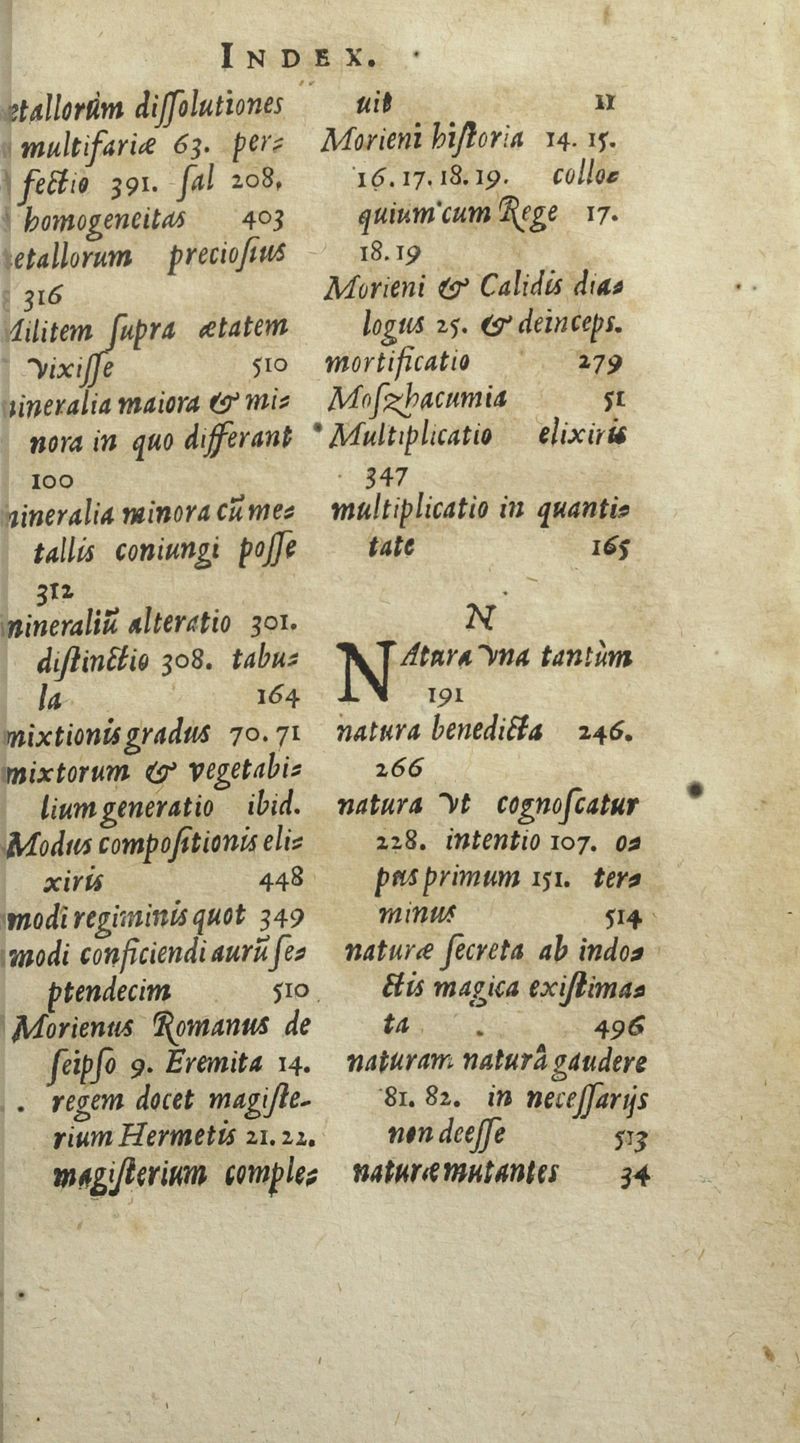 INDEX.
etallorũm diſſolutiones
multifariæ 63. per⸗
fectio 391. ſal 208,
homogeneitas 403
etallorum precioſius
316
ilitem ſupra ætatem
vixiſſe 510
ineralia maiora & mi⸗
nora in quo differant
100
mineralia minora cũ me⸗
tallis coniungi poſſe
312
mineraliũ alteratio 301.
diſtinctio 308. tabu⸗
la 164
mixtionis gradus 70. 71
mixtorum & vegetabi⸗
lium generatio ibid.
Modus compoſitionis eli⸗
xiris 448
modi regiminis quot 349
modi conficiendi aurũ ſe⸗
ptendecim 510
Morienus Romanus de
ſeipſo 9. Eremita 14.
regem docet magiſte-
rium Hermetis 21. 22.
magiſterium comple⸗
uit 11
Morieni hiſtoria 14. 15.
16. 17. 18. 19. collo⸗
quium cum Rege 17.
18. 19
Morieni & Calidis dia⸗
logus 25. & deinceps.
mortificatio 279
Moſzhacumia 51
Multiplicatio elixiris
347
multiplicatio in quanti⸗
tate 165
N
NAtura vna tantùm
191
natura benedicta 246.
266
natura vt cognoſcatur
228. intentio 107. o⸗
pus primum 151. ter⸗
minus 514
naturæ ſecreta ab indo⸗
ctis magica exiſtima⸗
ta 496
naturam naturâ gaudere
81. 82. in neceſſarijs
non deeſſe 513
naturæ mutantes 34